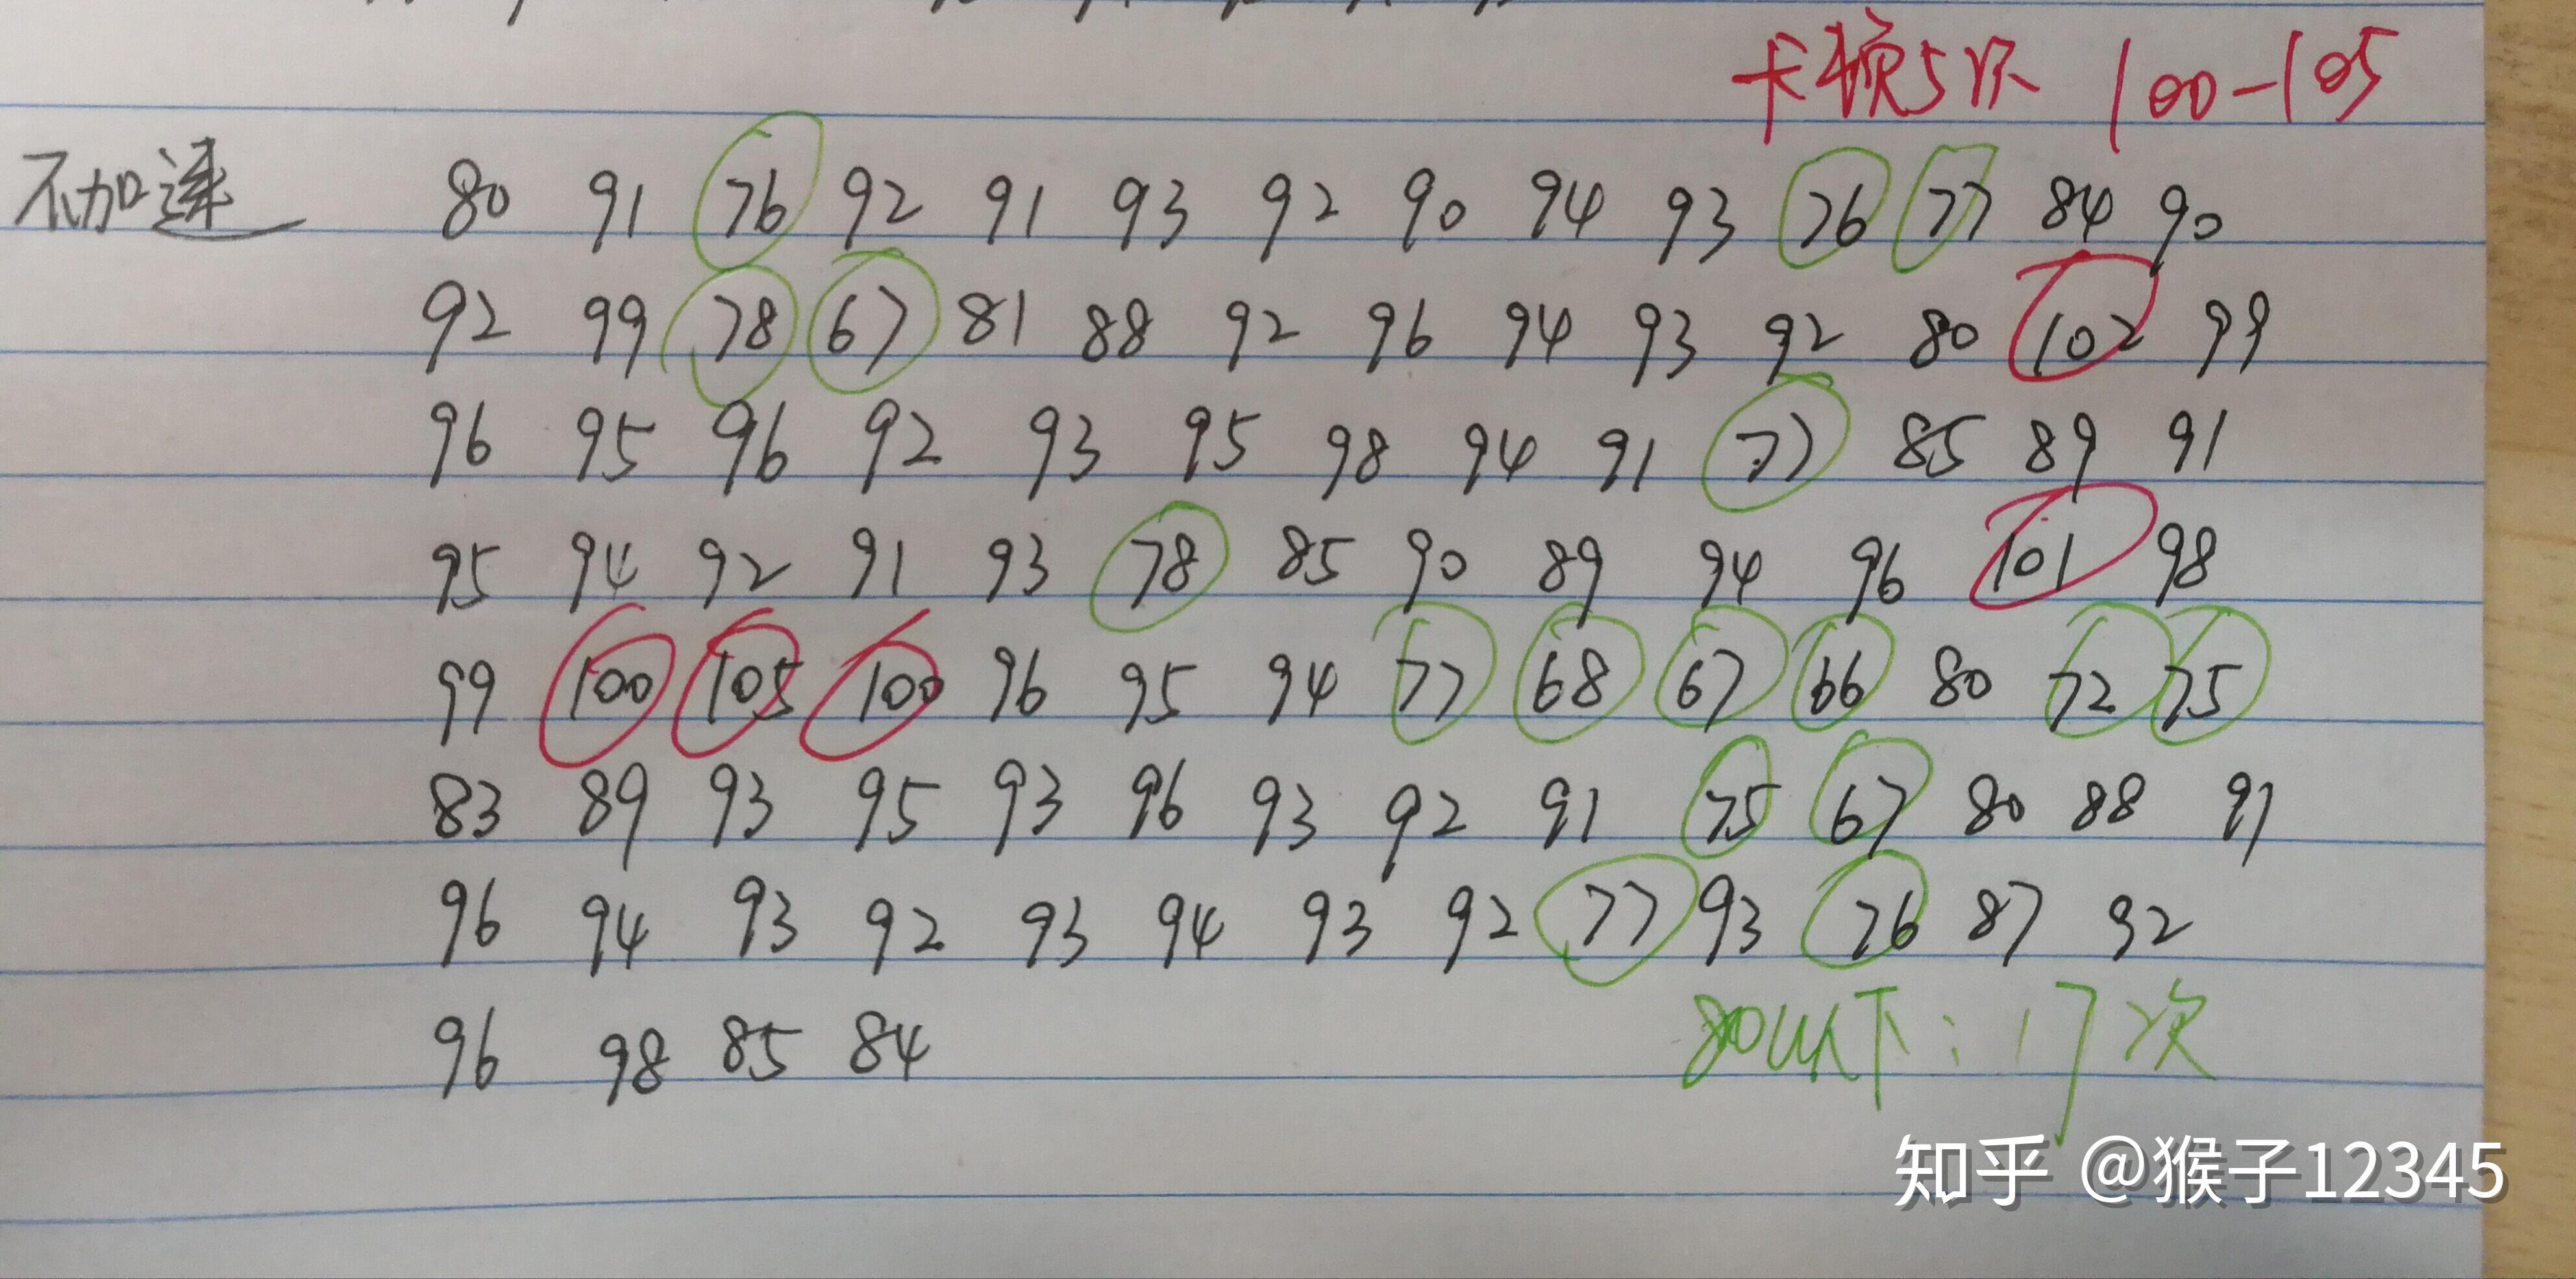 卡顿5次 100-105
不加速 80 91 76 92 91 93 92 90 94 93 76 77 84 90
92 99 78 67 81 88 92 96 94 93 92 80 102 99
96 95 96 92 93 95 98 94 91 77 85 89 91
95 94 92 91 93 78 85 90 89 94 96 101 98
99 100 105 100 96 95 94 77 68 67 66 80 72 75
83 89 93 95 93 96 93 92 91 75 67 80 88 91
96 94 93 92 93 94 93 92 77 93 76 87 92
96 98 85 84
80以下：17次
知乎 @猴子12345